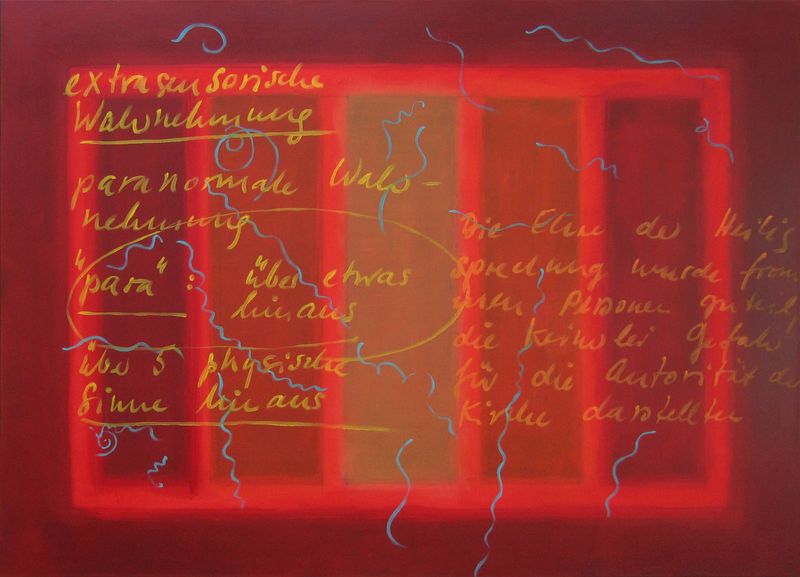 extrasensorische
Wahrnehmung
paranormale Wahr-
nehmung
"para" : über etwas
hinaus
über 5 physische
Sinne hinaus
Die Ehre der Heilig
sprechung wurde from
men Personen zuteil,
die keinerlei Gefahr
für die Autorität de
Kirche darstellten